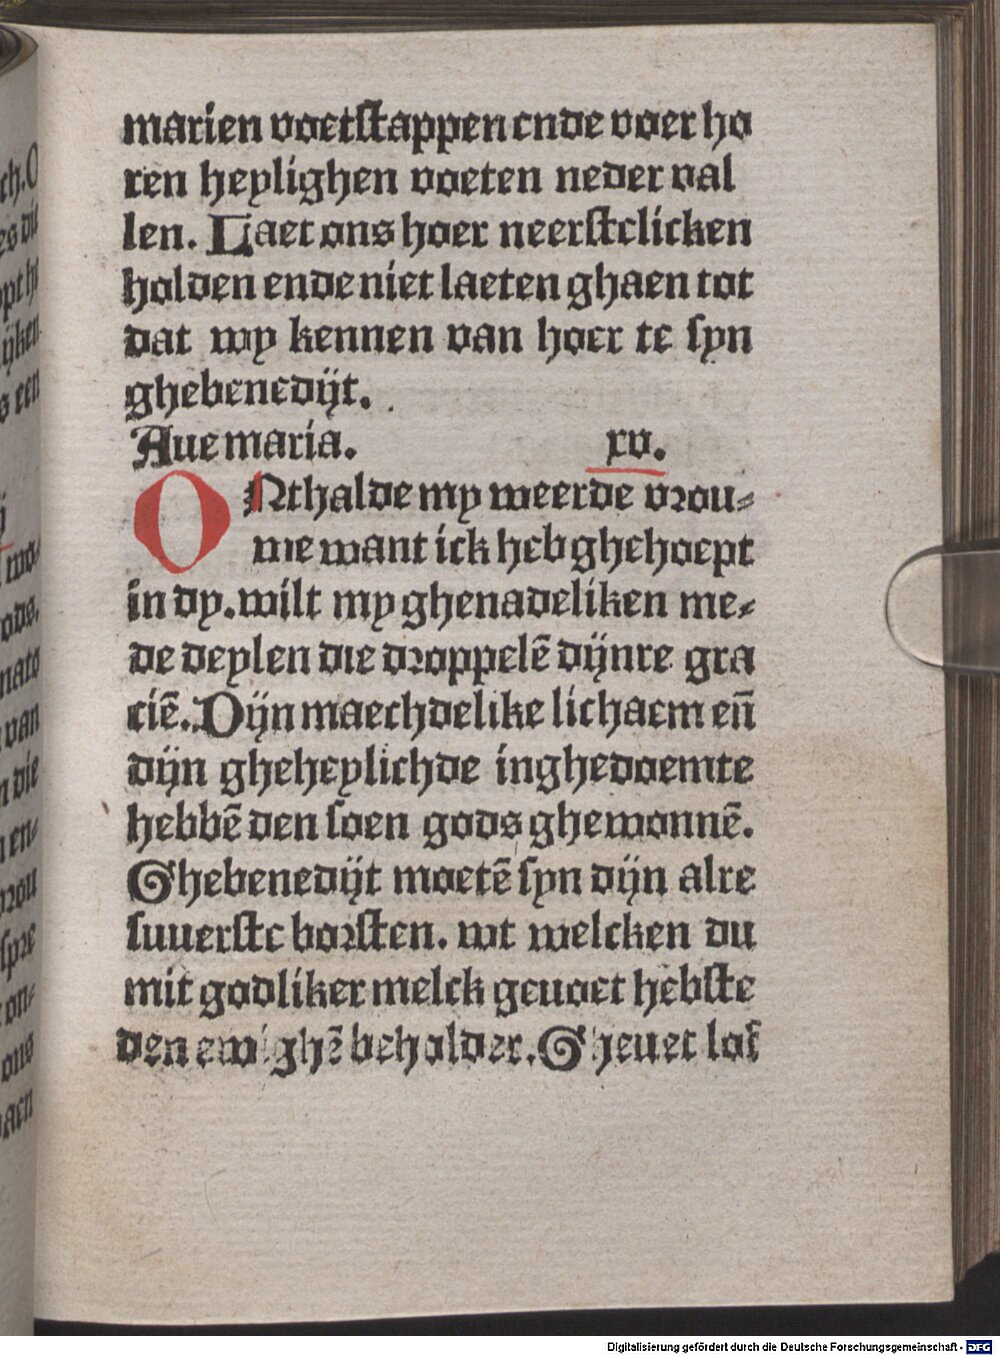 marien voetstappen ende voer ho
ren heylighen voeten neder val
len. Laet ons hoer neerstelicken
holden ende niet laeten ghaen tot
dat wy kennen van hoer te syn
ghebenedijt.
Aue maria. xv.
ONthalde my weerde vrou-
we want ick heb ghehoept
in dy. wilt my ghenadeliken me-
de deylen die droppelē dijnre gra
ciē. Dijn maechdelike lichaem eñ
dijn gheheylichde inghedoemte
hebbē den soen gods ghewonnē.
Ghebenedijt moetē syn dijn alre
suuerste borsten. wt welcken du
mit godliker melck geuoet hebste
den ewighē beholder. Gheuet lof
Digitalisierung gefördert durch die Deutsche Forschungsgemeinschaft - DFG